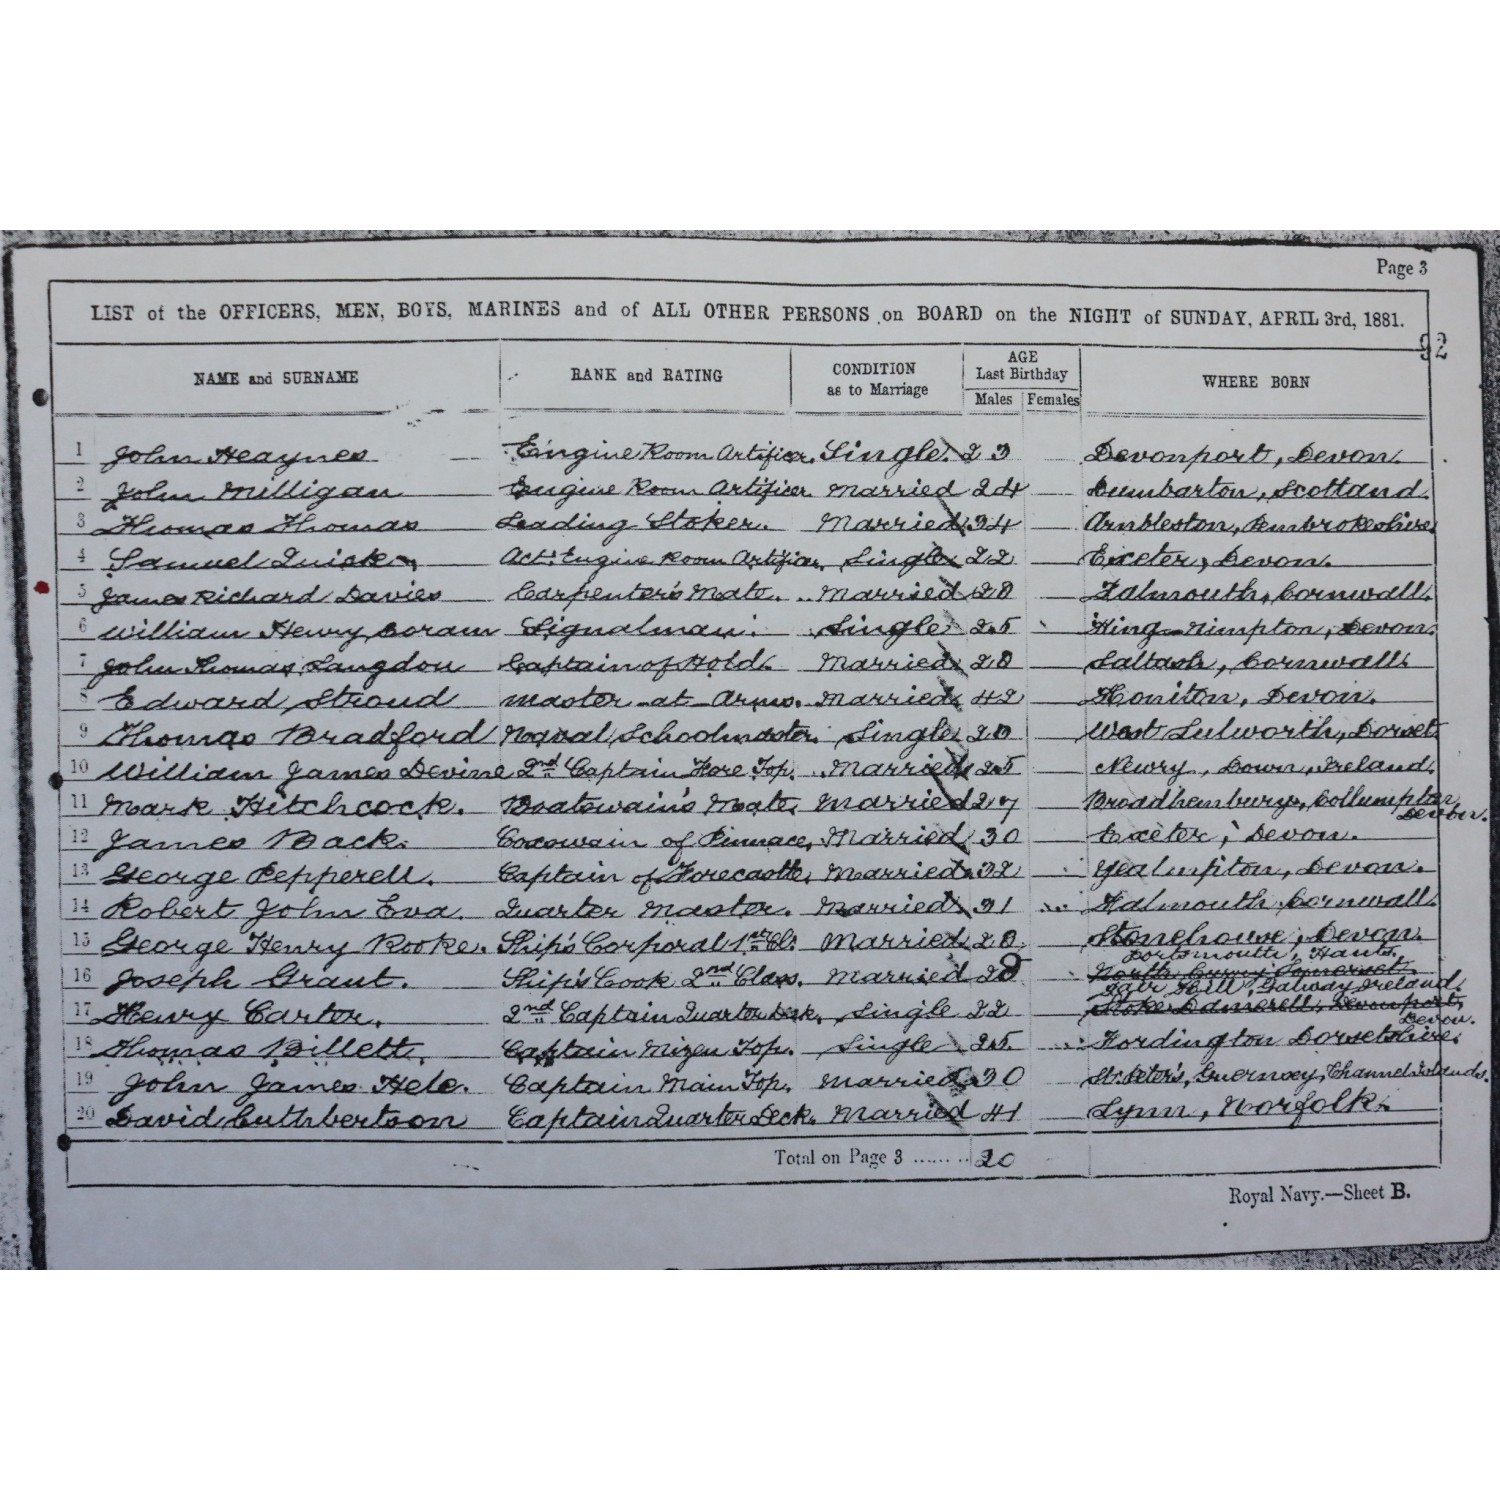 Page 3
LIST of the OFFICERS, MEN, BOYS, MARINES and of ALL OTHER PERSONS on BOARD on the NIGHT of SUNDAY, APRIL 3rd, 1881.
92
NAME and SURNAME RANK and RATING CONDITION as to Marriage AGE Last Birthday Males Females WHERE BORN
1 John Heaynes Engine Room Artificer. Single. 23 Devonport, Devon.
2 John Milligan Engine Room Artificer Married 24 Dumbarton, Scotland.
3 Thomas Thomas Leading Stoker. Married 34 Ambleston, Pembrokeshire.
4 Samuel Quick Actg Engine Room Artificer. Single 22 Exeter, Devon.
5 James Richard Davies Carpenter's Mate. Married 28 Falmouth, Cornwall.
6 William Henry Coram Signalman. Single 25 King-Nimpton, Devon.
7 John Thomas Langdon Captain of Hold. Married 28 Saltash, Cornwall.
8 Edward Stroud Master-at-Arms. Married 42 Honiton, Devon.
9 Thomas Bradford Naval Schoolmaster. Single 28 West Lulworth, Dorset
10 William James Devine 2nd Captain Fore Top. Married 25 Newry, Down, Ireland.
11 Mark Hitchcock. Boatswain's Mate. Married 27 Broadhembury, Collumpton, Devon.
12 James Back. Coxswain of Pinnace. Married 30 Exeter, Devon.
13 George Pepperell. Captain of Forecastle. Married 32 Yealmpton, Devon.
14 Robert John Eva. Quarter Master. Married 31 Falmouth, Cornwall.
15 George Henry Rooke. Ship's Corporal 1st Cl. Married 28 Stonehouse, Devon.
Portsmouth, Hants.
16 Joseph Grant. Ship's Cook 2nd Class. Married 28 North Curry Somerset.
Fair Hill, Galway, Ireland.
17 Henry Carter. 2nd Captain Quarter Deck. Single 22 Stoke Damerell, Devonport, Devon.
18 Thomas Billett. Captain Mizen Top. Single 25 Fordington Dorsetshire.
19 John James Hele. Captain Main Top. Married 30 St. Peter's, Guernsey, Channel Islands.
20 David Cuthbertson Captain Quarter Deck. Married 41 Lynn, Norfolk.
Total on Page 3 ........ 20
Royal Navy.—Sheet B.